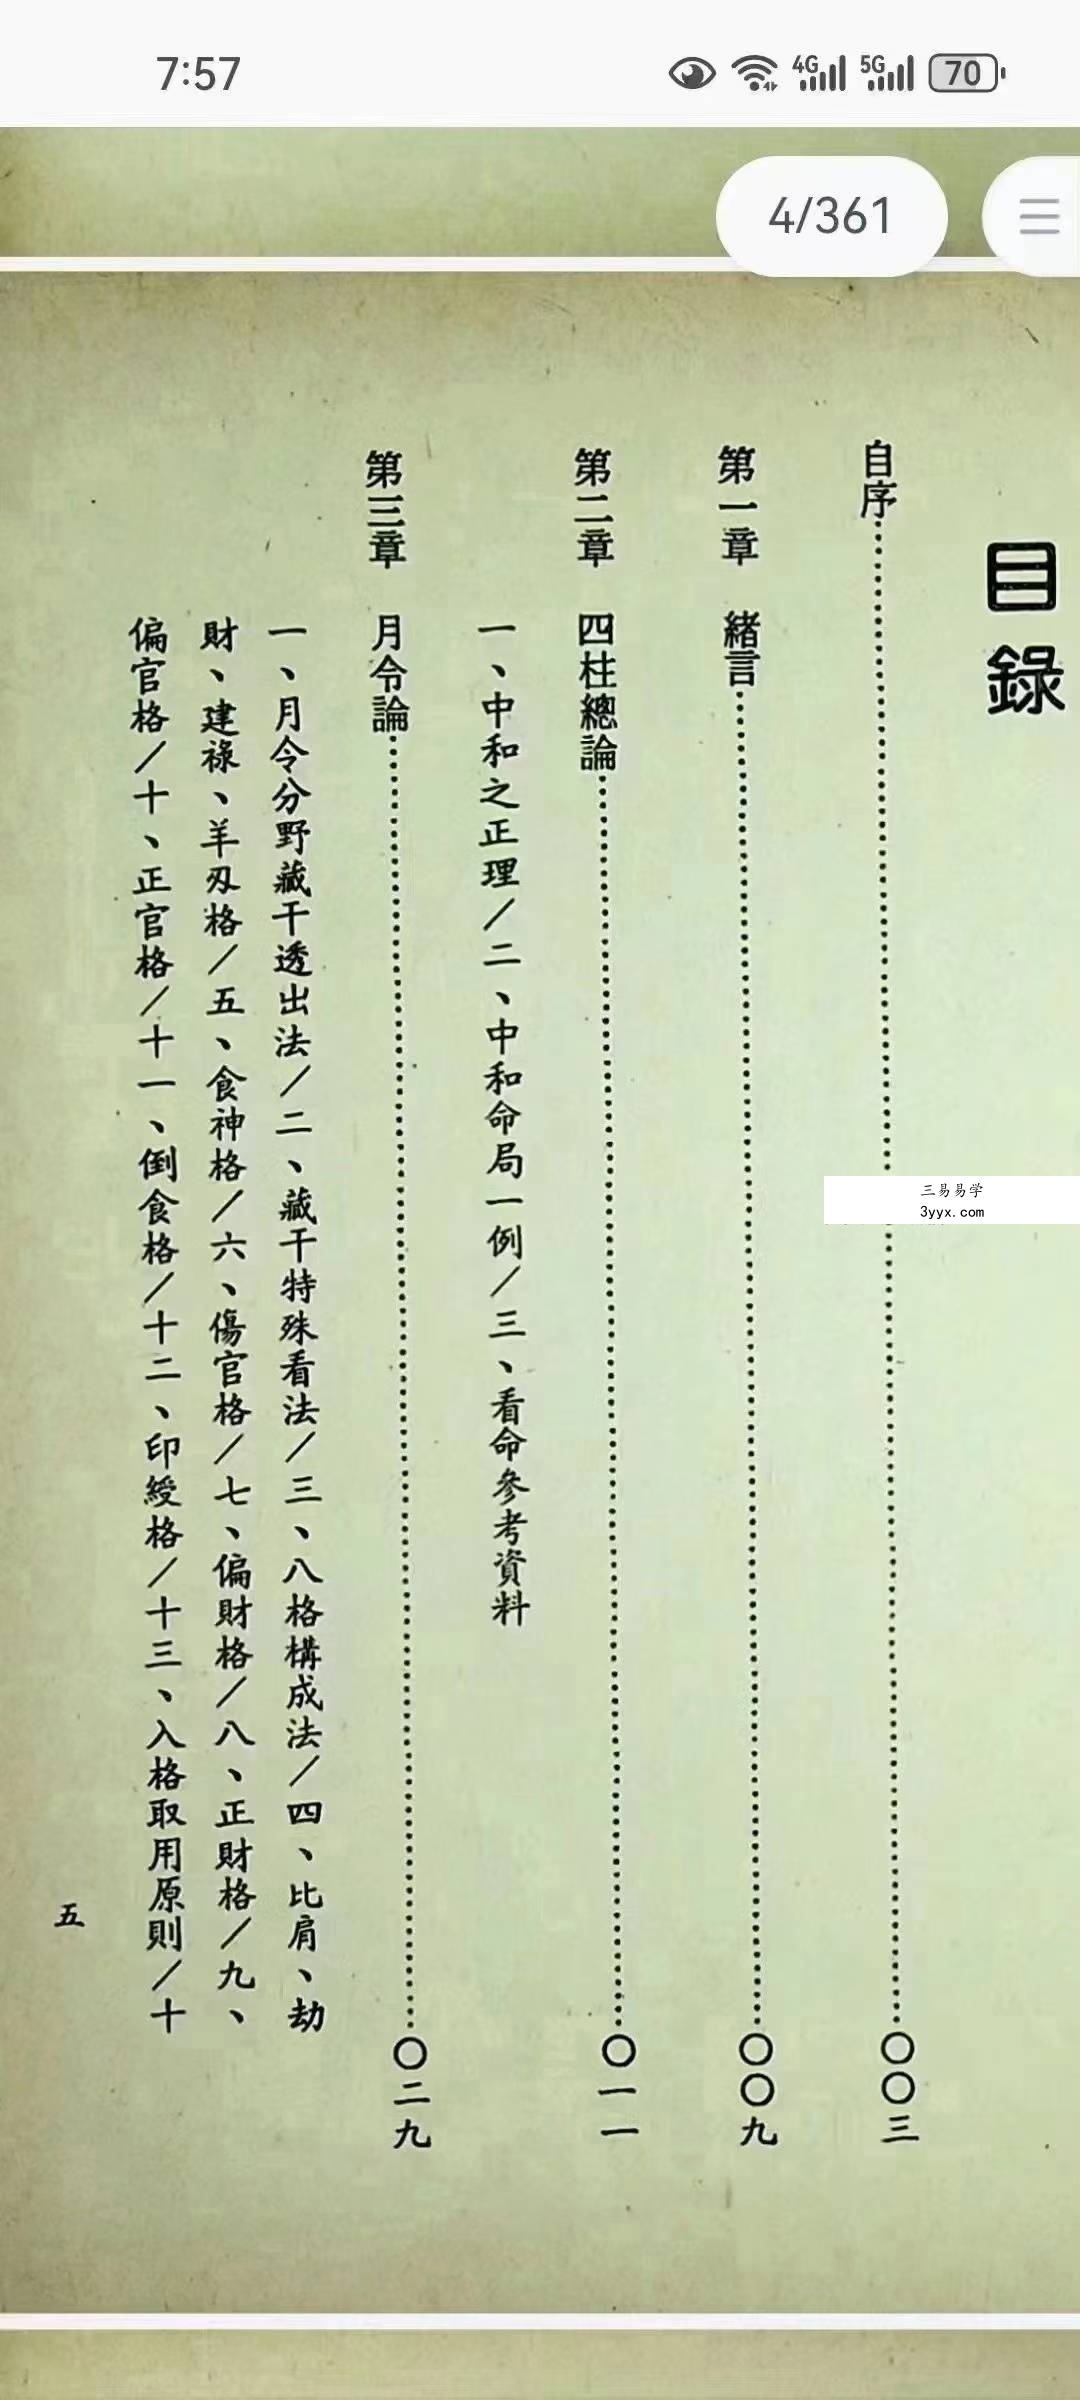 7:57
4G 5G 70
4/361
目錄
自序……〇〇三
第一章 緒言……〇〇九
第二章 四柱總論……〇一一
一、中和之正理／二、中和命局一例／三、看命參考資料
第三章 月令論……〇二九
一、月令分野藏干透出法／二、藏干特殊看法／三、八格構成法／四、比肩、劫
財、建祿、羊刄格／五、食神格／六、傷官格／七、偏財格／八、正財格／九、
偏官格／十、正官格／十一、倒食格／十二、印綬格／十三、入格取用原則／十
五
三易易学
3yyx.com